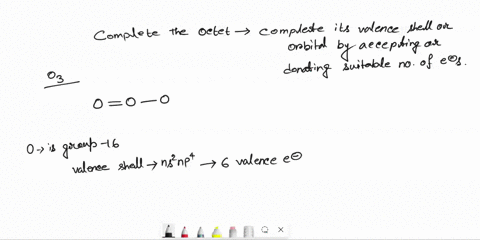 Complete the octet → complete its valence shell or
orbital by accepting or
donating suitable no. of e⊖s.
O₃
O=O-O
O→ is group-16
valence shell → ns²np⁴ → 6 valence e⊖